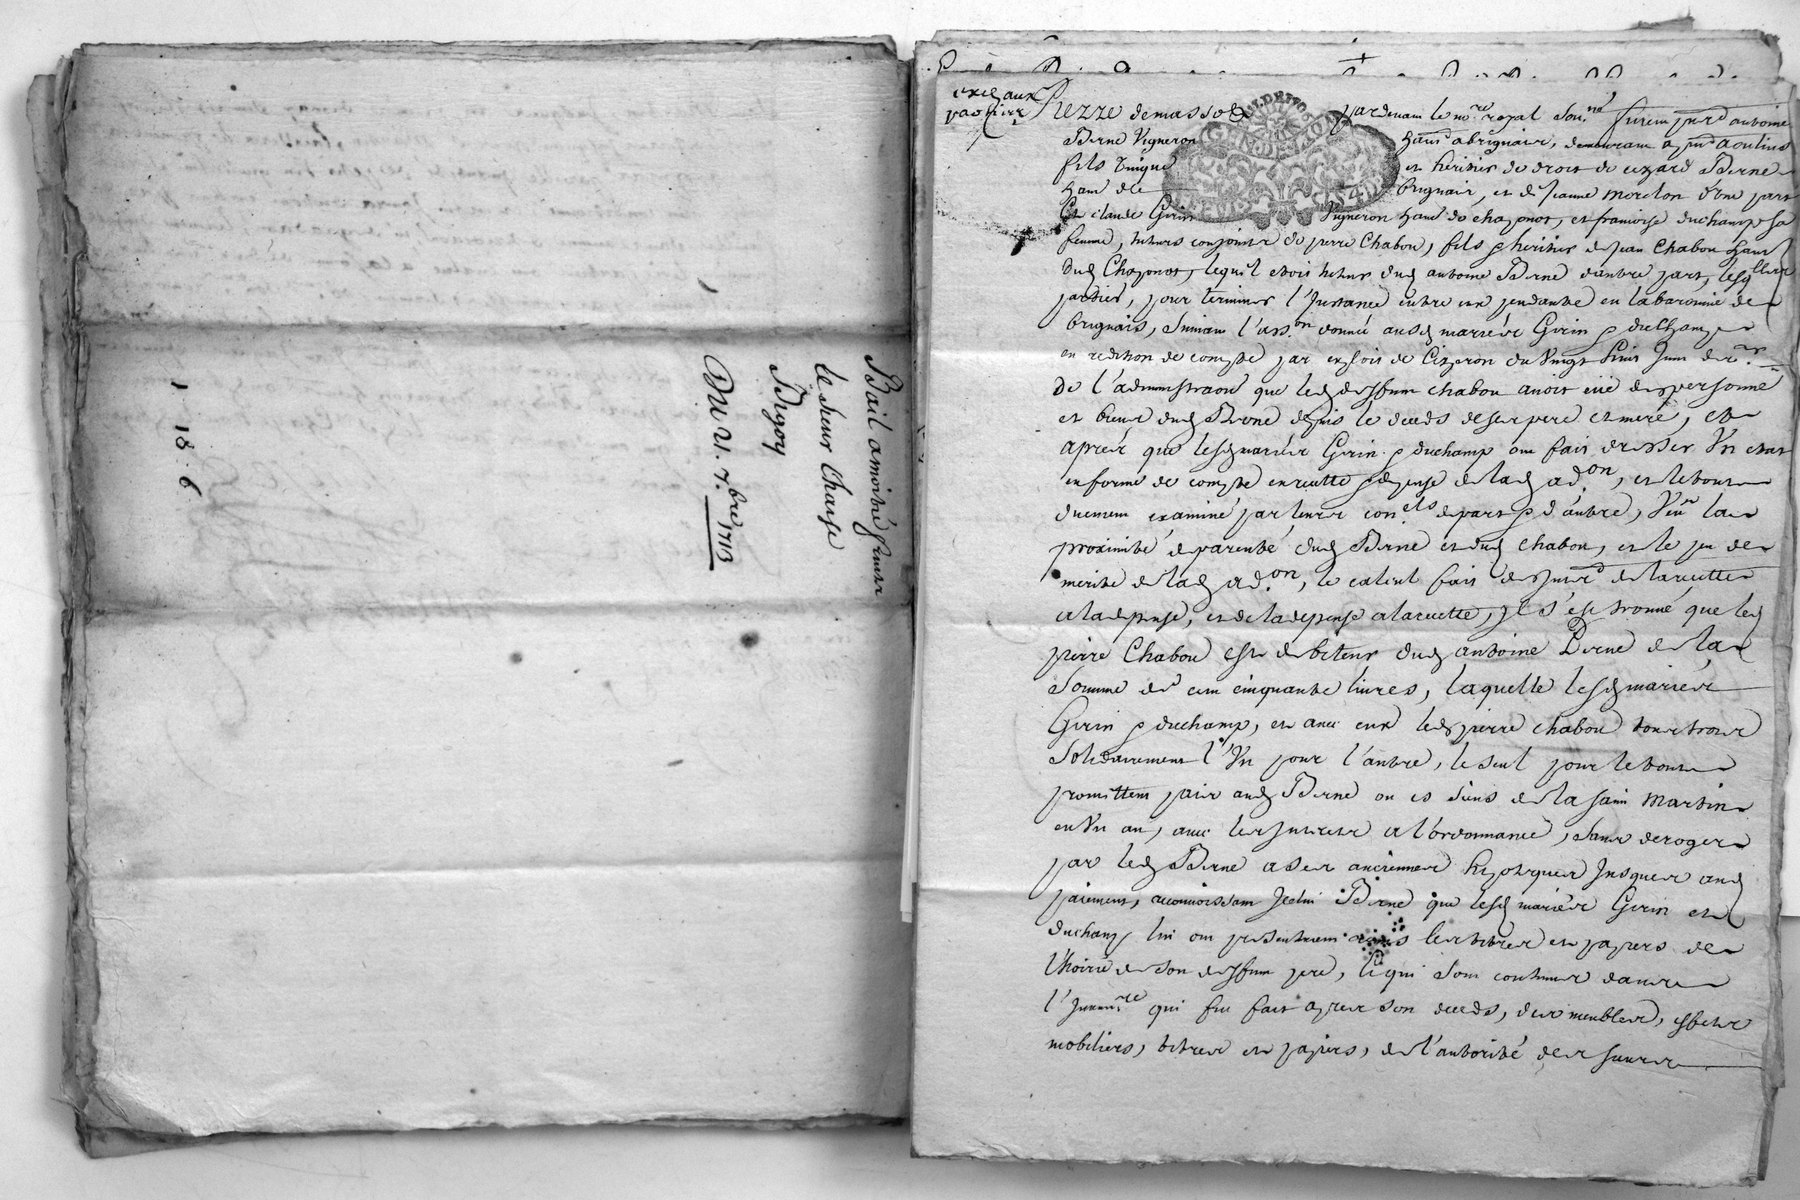 Bail a moitié fruitz
le sieur Chause
Du 21. 7.bre 1713
1 18. 6
exeq aux
pardevant le no.re royal sou.né furent pnt antoine
Berne Vigneron hant a brignais, demeurant a pnt a oulins
fils Unique et heritier de droit de cezard Berne
hant de brignais, et de Jeanne morelon d'une part
Et claude Girin Vigneron hant de chaponost, et francoise duchamp sa
femme, tuteurs conjoints de pierre Chabou, fils & heritier de Jean Chabou hant
dud Chaponost, lequel etoit tuteur dud antoine Berne d'autre part, lesq.lles
parties, pour terminer l'Instance entre eux pendante en la baronnie de
brignais, suivant l'ass.on donnée ausd mariés Girin & duchamp
en reddition de compte par exploit de Cizeron du Vingt huit Juin der.r
De l'administraon que led deffunt chabou avoit eüe des personne
et biens dud Berne depuis le deceds de ses pere et mere, et
apres que lesd mariés Girin & duchamp ont fait dresser Un etat
en forme de compte en recette & depense de lad ad.on, et le tout
duement examiné par leurs con.els de part & d'autre, Veu la
proximité de parenté dud Berne et dud Chabou, et le peu de
merite de lad ad.on, le calcul fait de la recette
a la depense, et de la depense a la recette, Il s'est trouvé que led
pierre Chabou est debiteur dud antoine Berne de la
Somme de cent cinquante livres, laquelle lesd mariés
Girin & duchamp, et avec eux led pierre chabou tous trois
Solidairement l'Un pour l'autre, le seul pour le tout
promettent paier aud Berne ou es siens de la saint Martin
en Un an, avec les Interets a l'ordonnance, sans deroger
par led Berne a ses anciennes hypotques Jusques aud
paiement, reconnoissant Jcelui Berne que lesd mariés Girin et
duchamp lui ont presentement remis les titres et papiers de
l'hoirie de son deffunt pere, qui sont contenus dans
l'Inven.re qui fut fait apres son deceds, des meubles, effets
mobiliers, titres et papiers, de l'autorité des